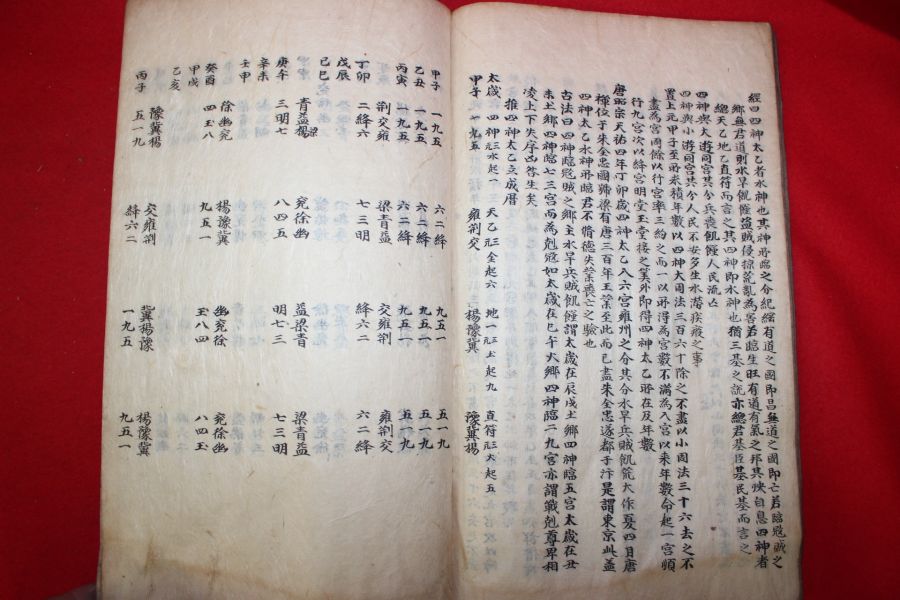 經曰四神太乙者水神也其神所臨之分紀綱有道之國即昌無道之國即亡若臨寇賊之
鄉無君道則水旱饑饉盜賊侵掠荒亂為害若臨生旺有道有氣之邦其殃自息四神者
總天乙地乙直符而言之其四神即水神也猶三基之說亦總君基臣基民基而言之
四神與太遊同宮其分兵喪飢饉人民流亡
四神與小遊同宮其分人民不安多生水潦疾疫之事
置上元甲子至所求積年數以四神大周法三百六十除之不盡以小周法三十六去之不
盡為宮周餘以行宮率三約之而一以所得為宮數不滿為入宮以來年數命起一宮順
行九宮次以絳宮明堂玉堂接之筭外即得四神太乙所在及年數
唐昭宗天祐四年丁卯歲四神太乙入六宮雍州之分其分水旱兵賊飢荒大作夏四月唐
禪位于朱全忠國號梁有唐三百年王業至此而已盡朱全忠遂都于汴是謂東京此蓋
四神太乙水神所臨君不脩德失業喪亡之驗也
古法曰四神臨寇賊之鄉主水旱兵賊飢饉謂太歲在辰戌土鄉四神臨五宮太歲在丑
未土鄉四神臨七三宮而為剋寇如太歲在巳午火鄉四神臨二九宮亦謂戰剋尊卑相
凌上下失序凶咎生矣
推四神太乙立成曆
太歲 四神 元三水起一 天乙 元三金起六 地一 元三土起九 直符 元三火起五
甲午 一九五 雍荊交 楊豫冀 豫冀楊
甲子 一九五 六二絳 九五一 五一九
乙丑 一九五 六二絳 九五一 五一九
丙寅 一九五 六二絳 九五一 五一九
荊交雍 交雍荊 雍荊交
丁卯 二絳六 絳六二 六二絳
戊辰 梁青益
七三明
己巳 青益梁 益梁青 梁青益
庚午 三明七 明七三 七三明
辛未 兗徐幽
壬申 八四玉
癸酉 徐幽兗 幽兗徐 兗徐幽
甲戌 四玉八 玉八四 八四玉
楊豫冀
乙亥 九五一
丙子 豫冀楊 交雍荊 冀楊豫 楊豫冀
五一九 絳六二 一九五 九五一